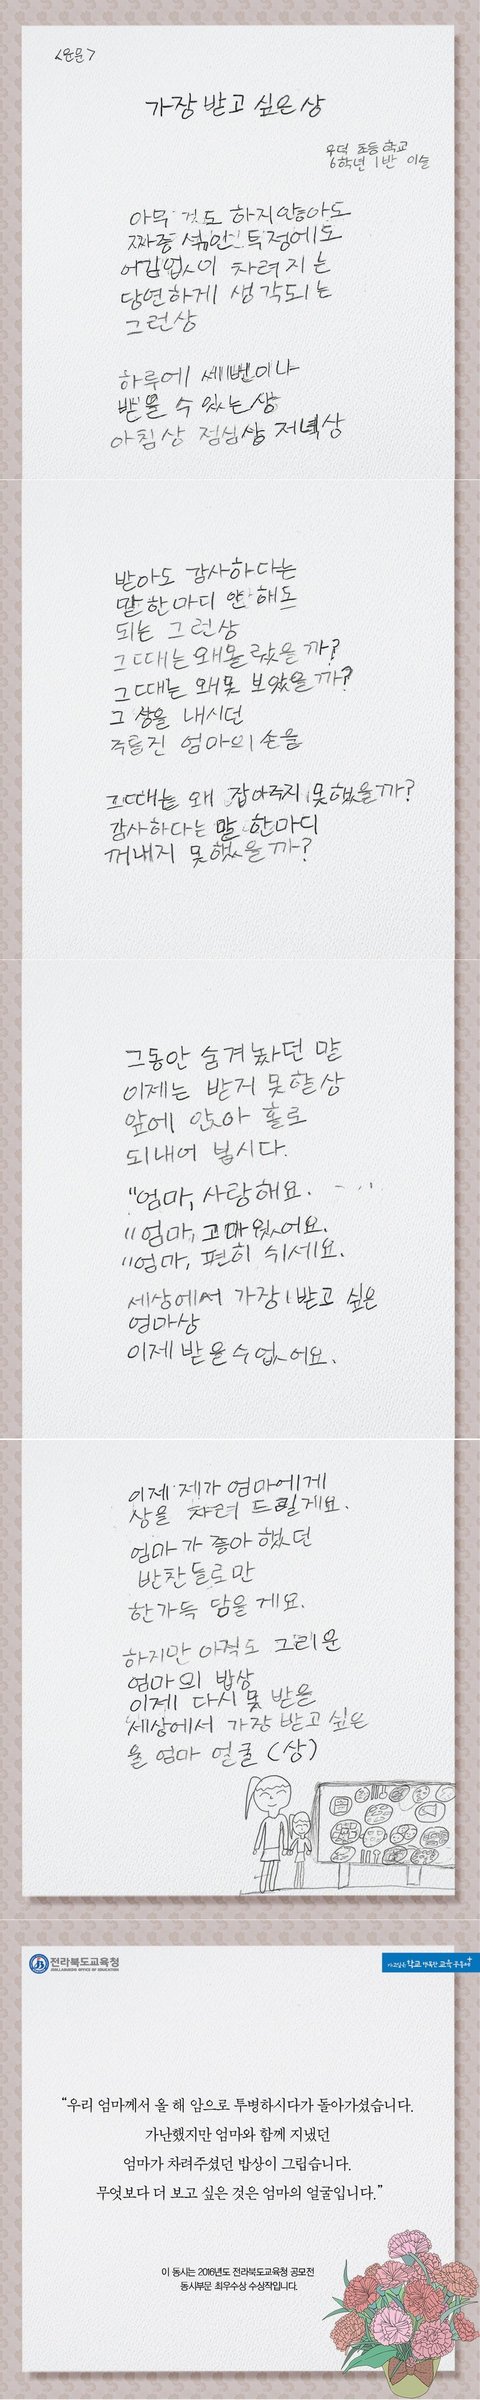 <운문>
가장 받고 싶은 상
우덕 초등학교
6학년 1반 이슬
아무것도 하지않아도
짜증 섞인 투정에도
어김없이 차려지는
당연하게 생각되는
그런상
하루에 세번이나
받을 수 있는상
아침상 점심상 저녁상
받아도 감사하다는
말한마디 안해도
되는 그런상
그때는 왜몰랐을까?
그때는 왜못 보았을까?
그 상을 내시던
주름진 엄마의 손을
그때는 왜 잡아주지 못했을까?
감사하다는 말 한마디
꺼내지 못했을까?
그동안 숨겨놨던 말
이제는 받지 못할상
앞에 앉아 홀로
되내어 봅시다.
"엄마, 사랑해요. -...
"엄마, 고마웠어요.
"엄마, 편히 쉬세요.
세상에서 가장 받고 싶은
엄마상
이제 받을수 없어요.
이제 제가 엄마에게
상을 차려 드릴게요.
엄마가 좋아했던
반찬들로만
한가득 담을게요.
하지만 아직도 그리운
엄마의 밥상
이제 다시 못 받을
세상에서 가장 받고 싶은
울 엄마 얼굴 (상)
전라북도교육청
JEOLLABUKDO OFFICE OF EDUCATION
가고싶은 학교 행복한 교육공동체
"우리 엄마께서 올 해 암으로 투병하시다가 돌아가셨습니다.
가난했지만 엄마와 함께 지냈던
엄마가 차려주셨던 밥상이 그립습니다.
무엇보다 더 보고 싶은 것은 엄마의 얼굴입니다."
이 동시는 2016년도 전라북도교육청 공모전
동시부문 최우수상 수상작입니다.